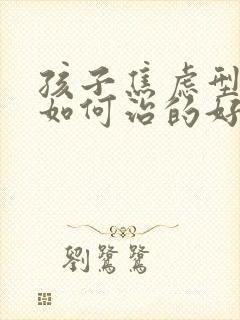 孩子焦虑型
如何治的好
劉鷺鷺